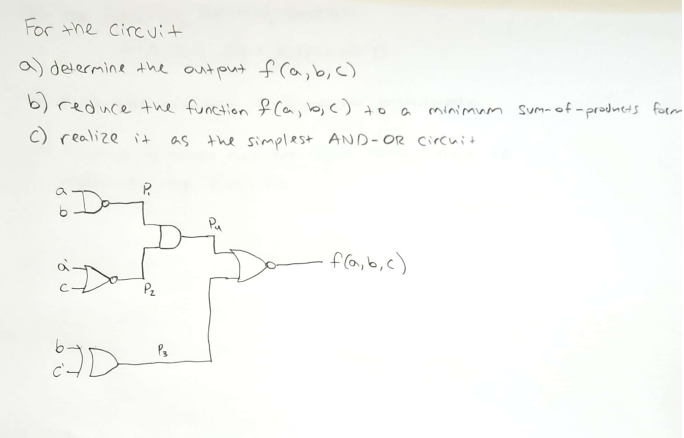 For the circuit
a) determine the output f(a,b,c)
b) reduce the function f(a,b,c) to a minimum sum-of-products form
c) realize it as the simplest AND-OR circuit
a
b
P1
P4
a'
c
P2
f(a,b,c)
b
c'
P3